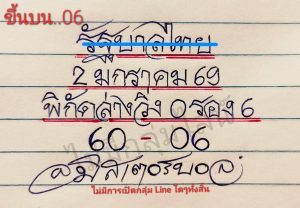 ขึ้นบน..06
รัฐบาลไทย
2 มกราคม 69
พิกัดล่างวิ่ง 0 รอง 6
60 - 06
ไม่มีการเปิดกลุ่ม Line ใดๆทั้งสิ้น